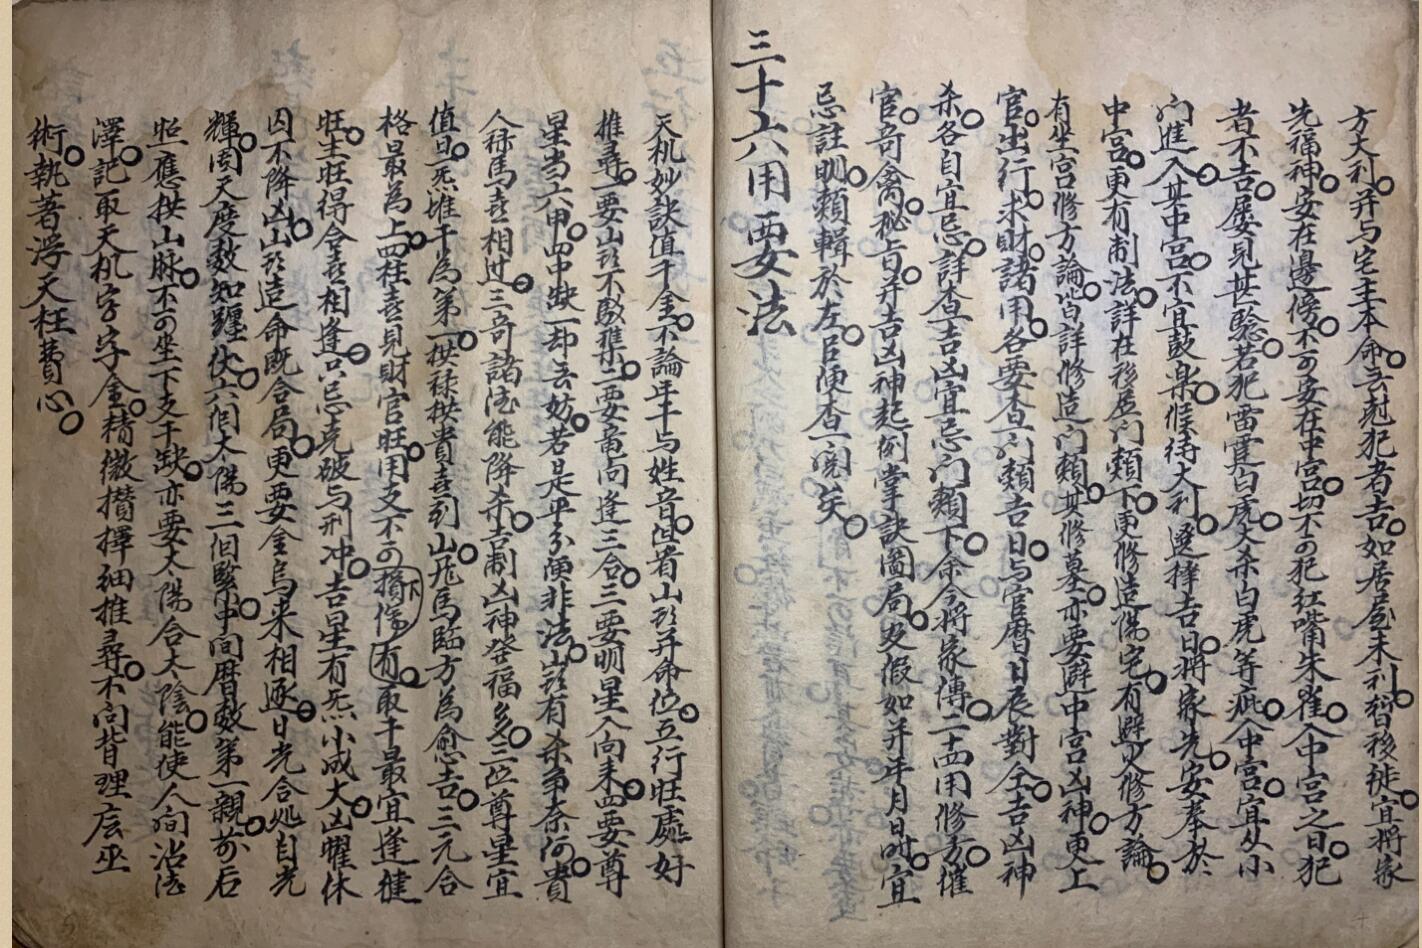 方大利并与宅主本命去尅犯者吉如居屋未利暂移徙宜将家
先福神安在邊傍不可安在中宫切不可犯紅嘴朱雀入中宫之日犯
者不吉屡見甚驗若犯雷霆白虎大杀白虎等疵入中宫宜从小
门進入其中宫不宜鼓樂候待大利選择吉日将家先安奉於
中宫更有制法詳在移居门類下更修造陽宅有避火修方論
有坐宫修方論皆詳修造门類其修墓亦要避中宫凶神更上
官出行求財諸用各要查门類吉日与官曆日辰對全吉凶神
杀各自宜忌詳查吉凶宜忌门類下余今将家傳二十四用修方催
官奇禽秘旨并吉凶神起例掌訣圖局更假如并年月日时宜
忌註明類輯於左以便查一阅矣
三十六用要法
天机妙訣值千金不論年干与姓音但看山头并命位五行旺處好
推尋一要山头不駁雜二要龍向逢三合三要明星入向来四要尊
星当六甲四中缺一却去妨若是平分便非法山头有杀争奈何貴
人禄馬喜相过三奇諸德能降杀吉制凶神發福多三位尊星宜
值旦炁堆干為第一拱禄拱貴喜到山飛馬臨方為愈吉三元合
格最為上四柱喜見財官旺用支不可損傷有取干最宜逢健
旺生旺得合喜相逢只忌克破与刑冲吉星有炁小成大凶曜休
囚不降凶山头造命既合局更要金烏来相逐日光合処自光
輝周天度数知躔伏六個太陽三個緊中间曆数第一親前后
照應拱山脉不可坐下支干缺亦要太陽合太陰能使人间沾德
澤記取天机字字金精微攢擇細推尋不向背理庄巫
術執著浮天枉費心